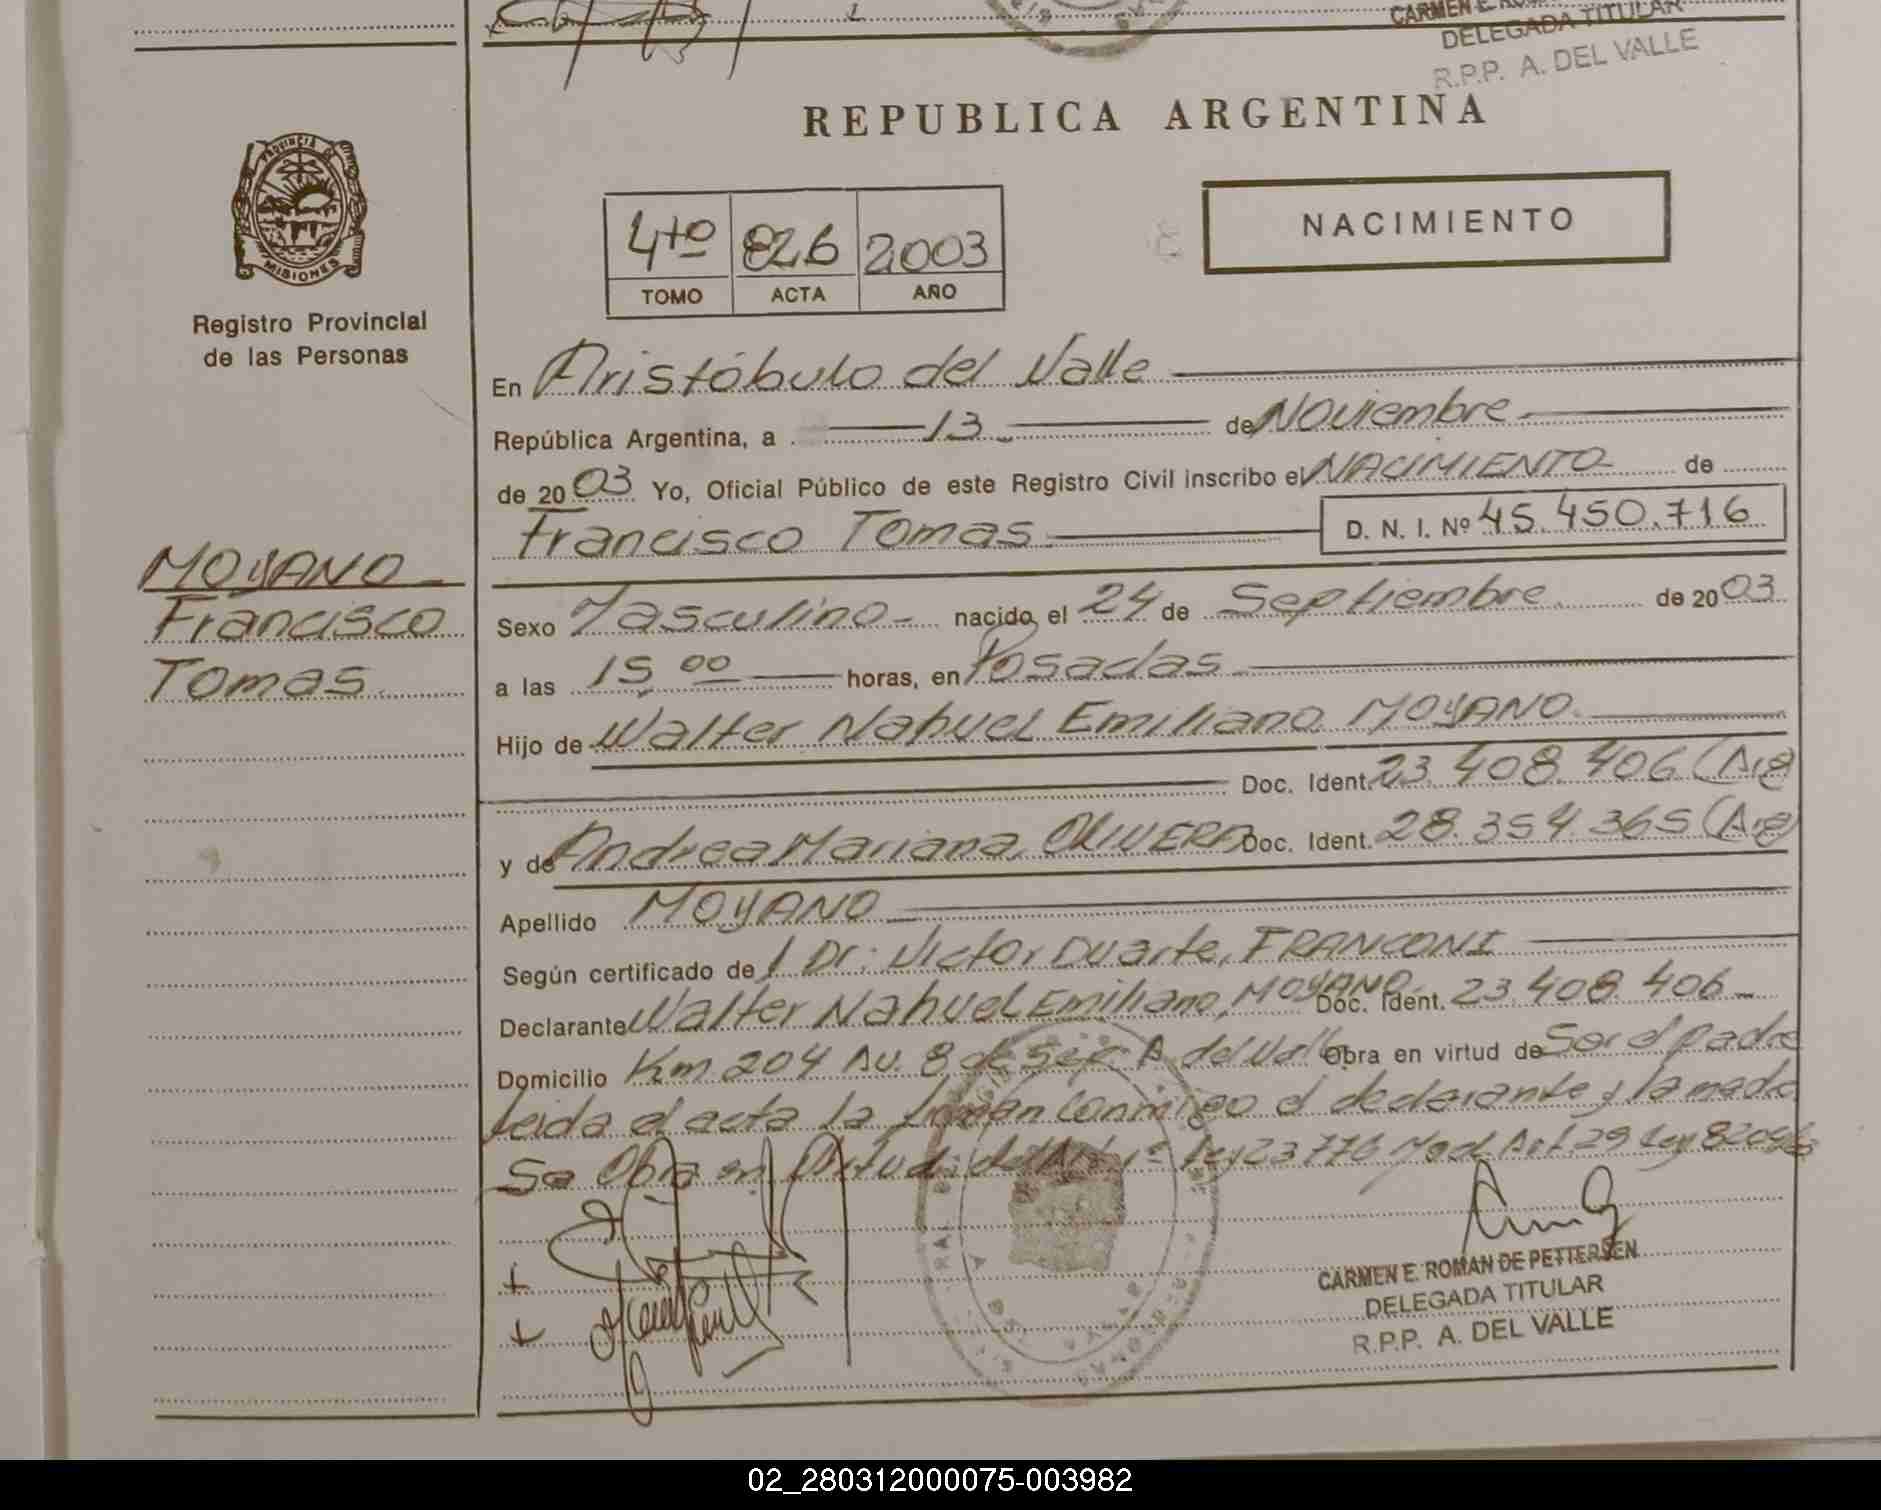 CARMEN E. ROMAN
DELEGADA TITULAR
R.P.P. A. DEL VALLE
REPUBLICA ARGENTINA
PROVINCIA DE
MISIONES
Registro Provincial
de las Personas
4to 826 2003
TOMO ACTA AÑO
NACIMIENTO
En Aristóbulo del Valle
República Argentina, a 13 de Noviembre
de 2003 Yo, Oficial Público de este Registro Civil inscribo el NACIMIENTO de
Francisco Tomas D. N. I. Nº 45.450.716
MOYANO
Francisco
Tomas
Sexo Masculino nacido el 24 de Septiembre de 2003
a las 15,00 horas, en Posadas
Hijo de Walter Nahuel Emiliano MOYANO
Doc. Ident. 23.408.406 (Arg)
y de Andrea Mariana, OLIVERA Doc. Ident. 28.354.365 (Arg)
Apellido MOYANO
Según certificado de l Dr: Victor Duarte, FRANCONI
Declarante Walter Nahuel Emiliano, MOYANO Doc. Ident. 23.408.406
Domicilio Km 204 Av. 8 de Sep A. del Valle Obra en virtud de Ser el padre
Leida el acta la firman conmigo el declarante y la madre
Se Obra en Virtud: del Art 1º Ley 23776 y del Art 29 Ley
CARMEN E. ROMAN DE PETTERSEN
DELEGADA TITULAR
R.P.P. A. DEL VALLE
02_280312000075-003982